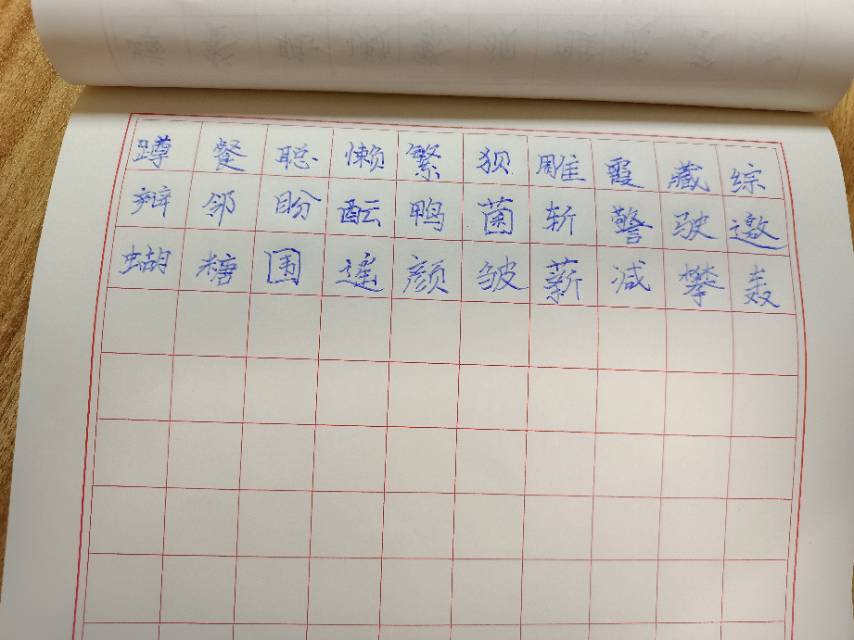 蹲餐聪懒繁狈雕霞藏综
辩邻盼酝鸭菌斩警驶邀
蝴糖围遥颜皱薪减攀轰